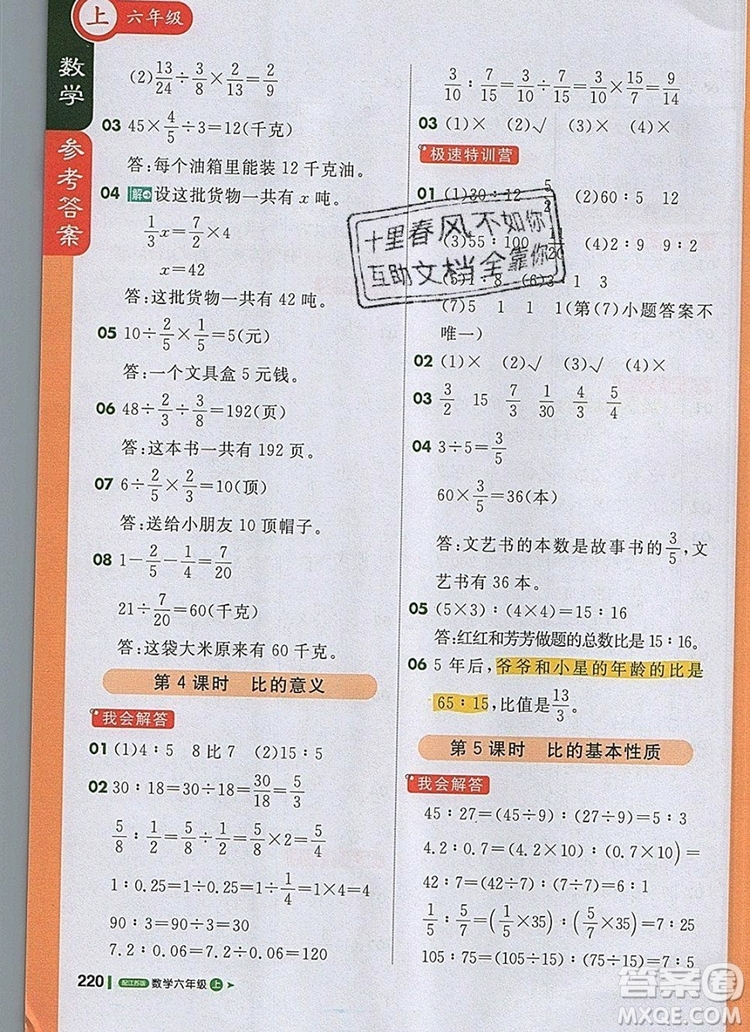 上 六年级
数学
参考答案
(2) 13/24÷3/8×2/13=2/9
03 45×4/5÷3=12(千克)
答:每个油箱里能装 12 千克油。
04 解 设这批货物一共有 x 吨。
1/3 x=7/2×4
x=42
答:这批货物一共有 42 吨。
05 10÷2/5×1/5=5(元)
答:一个文具盒 5 元钱。
06 48÷2/3÷3/8=192(页)
答:这本书一共有 192 页。
07 6÷2/5×2/3=10(顶)
答:送给小朋友 10 顶帽子。
08 1-2/5-1/4=7/20
21÷7/20=60(千克)
答:这袋大米原来有 60 千克。
第 4 课时 比的意义
我会解答
01 (1)4∶5 8 比 7 (2)15∶30
02 30∶18=30÷18=30/18=5/3
5/8∶1/2=5/8÷1/2=5/8×2=5/4
1∶0.25=1÷0.25=1÷1/4=4
90∶3=90÷3=30
7.2∶0.06=7.2÷0.06=120
220 配江苏版 数学六年级 上
3/10∶7/15=3/10÷7/15=3/10×15/7=9/14
03 (1)× (2)√ (3)×
极速特训营
01 (1)30∶5 5/2 (2)60∶5 12
(3)55∶100 /20 (4)2∶9 9∶2
1∶8 3 1 3
(7)5 1 1 1(第(7)小题答案不
唯一)
02 (1)× (2)√ (3)√ (4)×
03 3/2 15 7/3 1/30 4/3 5/4
04 3÷5=3/5
60×3/5=36(本)
答:文艺书的本数是故事书的3/5,文
艺书有 36 本。
05 (5×3)∶(4×4)=15∶16
答:红红和芳芳做题的总数比是 15∶16。
06 5 年后,爷爷和小星的年龄的比是
65∶15,比值是13/3。
第 5 课时 比的基本性质
我会解答
45∶27=(45÷9)∶(27÷9)=5∶3
4.2∶0.7=(4.2×10)∶(0.7×10)=
42∶7=(42÷7)∶(7÷7)=6∶1
1/5∶5/7=(1/5×35)∶(5/7×35)=7∶25
105∶75=(105÷15)∶(75÷15)=7∶5
十里春风不如你
互助文档全靠你
答案圈
MXQE.COM